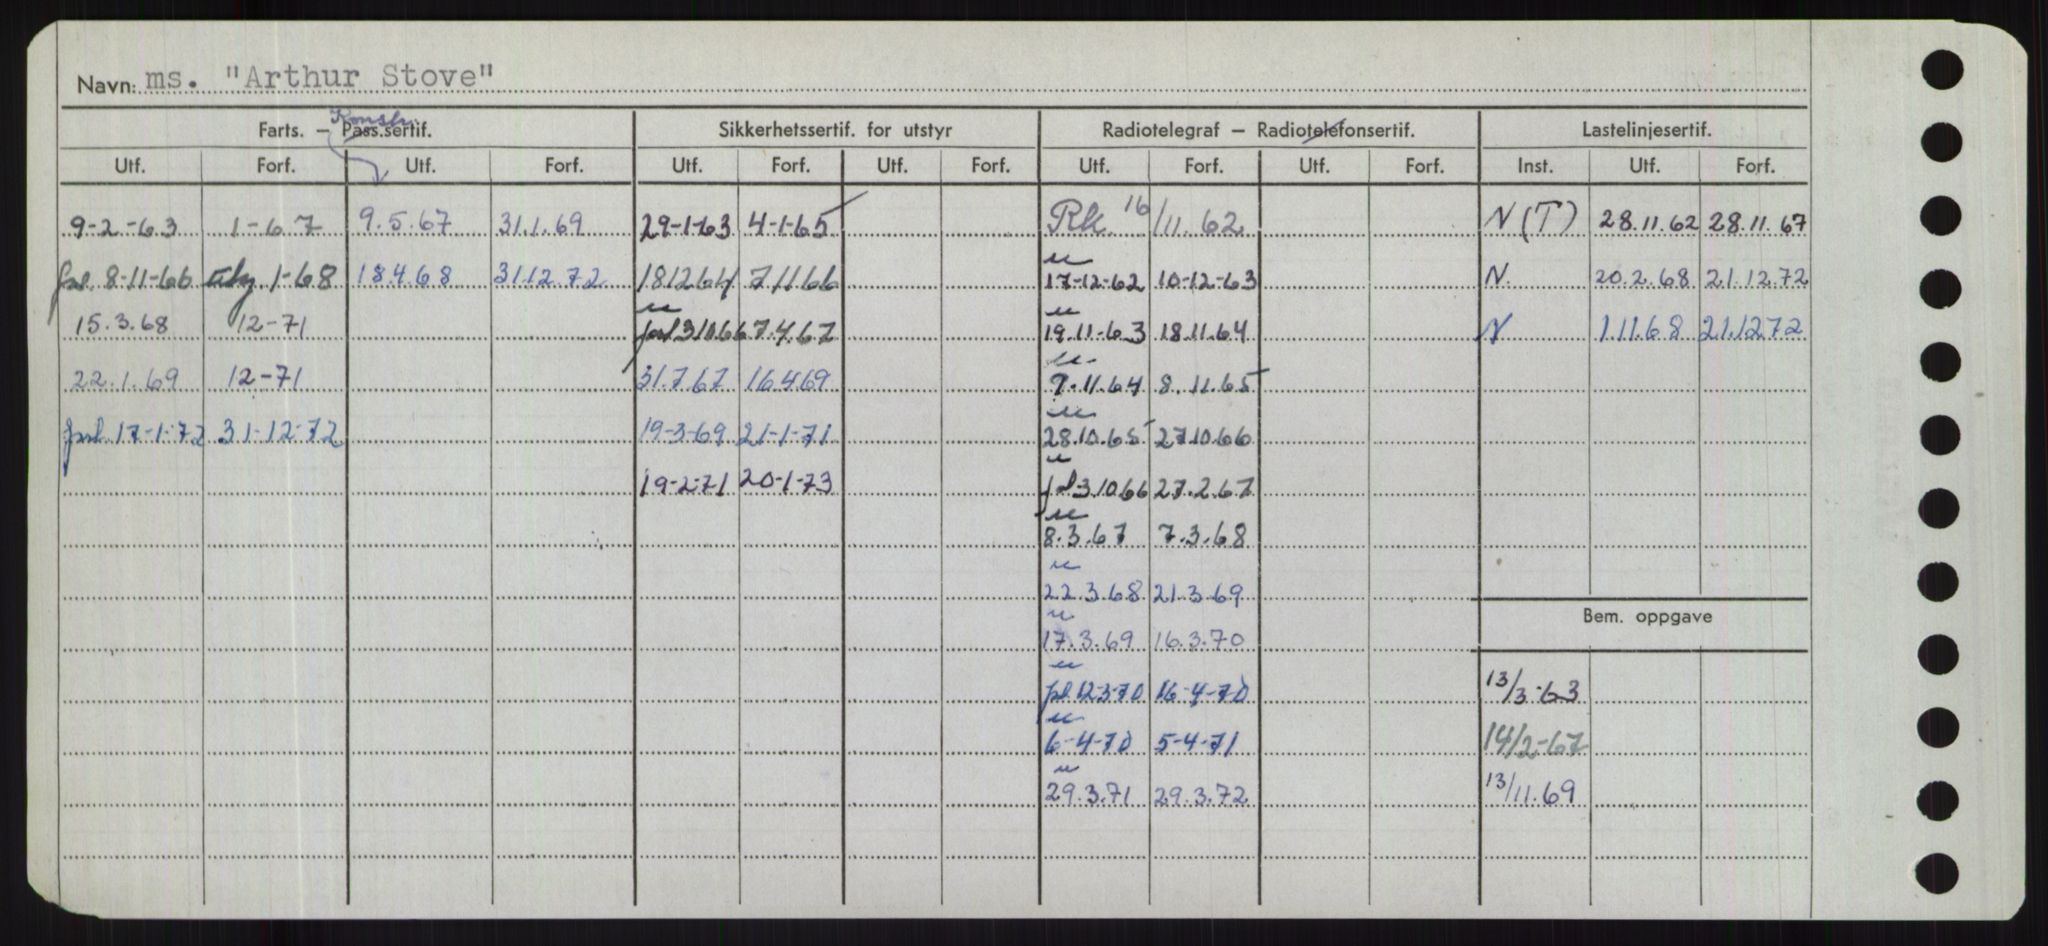 Navn: ms. "Arthur Stove"
Konstr.
Farts. – Pass.sertif. Sikkerhetssertif. for utstyr Radiotelegraf – Radiotelefonsertif. Lastelinjesertif.
Utf. Forf. Utf. Forf. Utf. Forf. Utf. Forf. Utf. Forf. Utf. Forf. Inst. Utf. Forf.
9-2-63 1-67 9.5.67 31.1.69 29-1-63 4-1-65 Rk. 16/11.62 N(T) 28.11.62 28.11.67
8-11-66 1-68 18.4.68 31.12.72 18.12.64 7.11.66 17-12-62 10-12-63 N. 20.2.68 21.12.72
15.3.68 12-71 3.10.66 7.4.67 19.11-63 18.11.64 N 1.11.68 21.12.72
22.1.69 12-71 31.7.67 16.4.69 9.11.64 8.11.65
forl. 17-1-72 31-12-72 19-3-69 21-1-71 28.10.65 27.10.66
19-2-71 20-1-73 3.10.66 27.2.67
8.3.67 7.3.68
22.3.68 21.3.69
Bem. oppgave
17.3.69 16.3.70
12-3-70 16-4-70 13/3-63
6-4-70 5-4-71 14/2-67
29.3.71 29.3.72 13/11.69